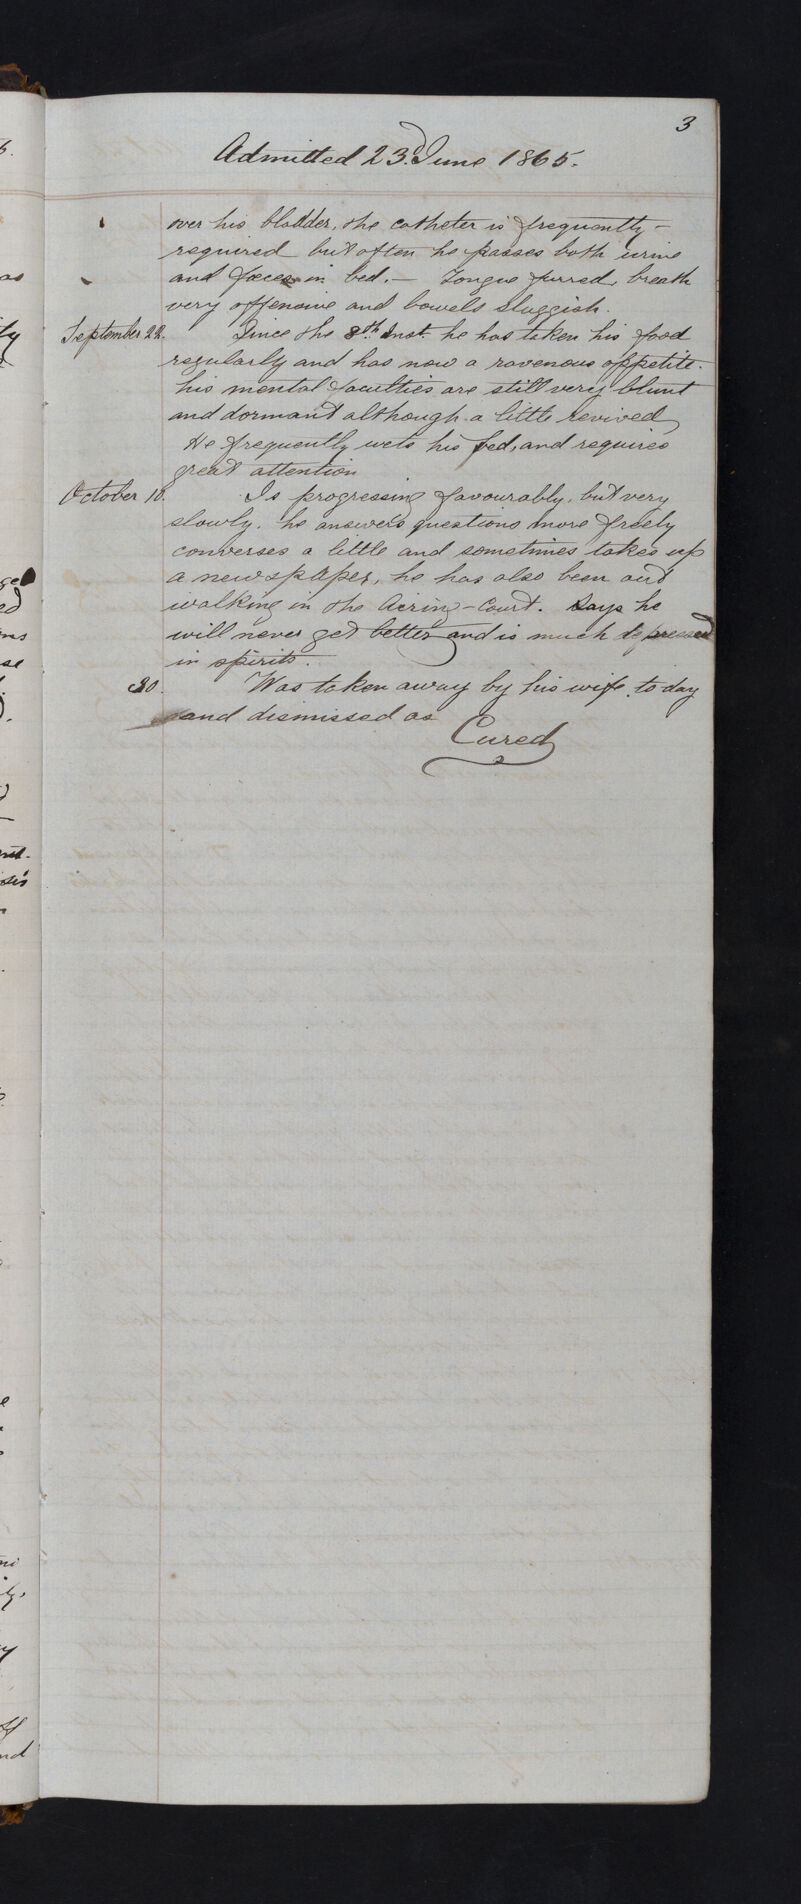 3
Admitted 23.d June 1865.
over his bladder, the catheter is frequently -
required but often he passes both urine
and fæces in bed. — Tongue furred, breath
very offensive and bowels sluggish.
September 22. Since the 8.th Inst. he has taken his food
regularly and has now a ravenous appetite.
his mental faculties are still very blunt
and dormant although a little revived
He frequently wets his bed, and requires
great attention
October 10. Is progressing favourably, but very
slowly. he answers questions more freely
converses a little and sometimes takes up
a newspaper, he has also been out
walking in the Airing-Court. Says he
will never get better and is much depressed
in spirits.
30. Was taken away by his wife to day
and dismissed as
Cured